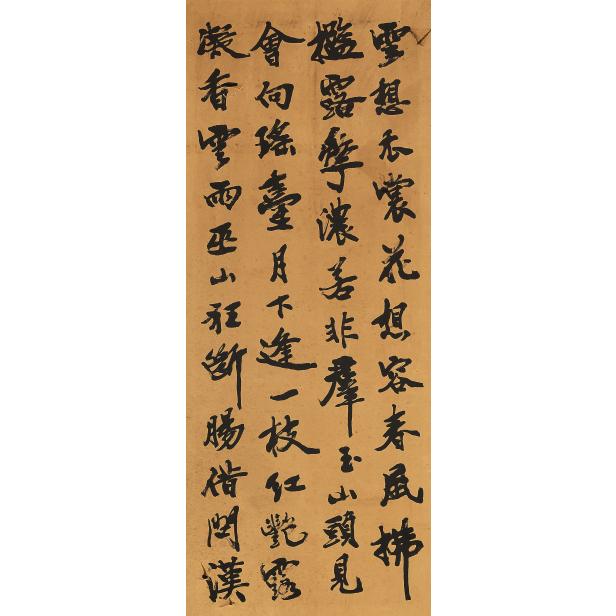 雲想衣裳花想容春風拂
檻露華濃若非羣玉山頭見
會向瑤臺月下逢一枝紅艷露
凝香雲雨巫山枉斷腸借問漢